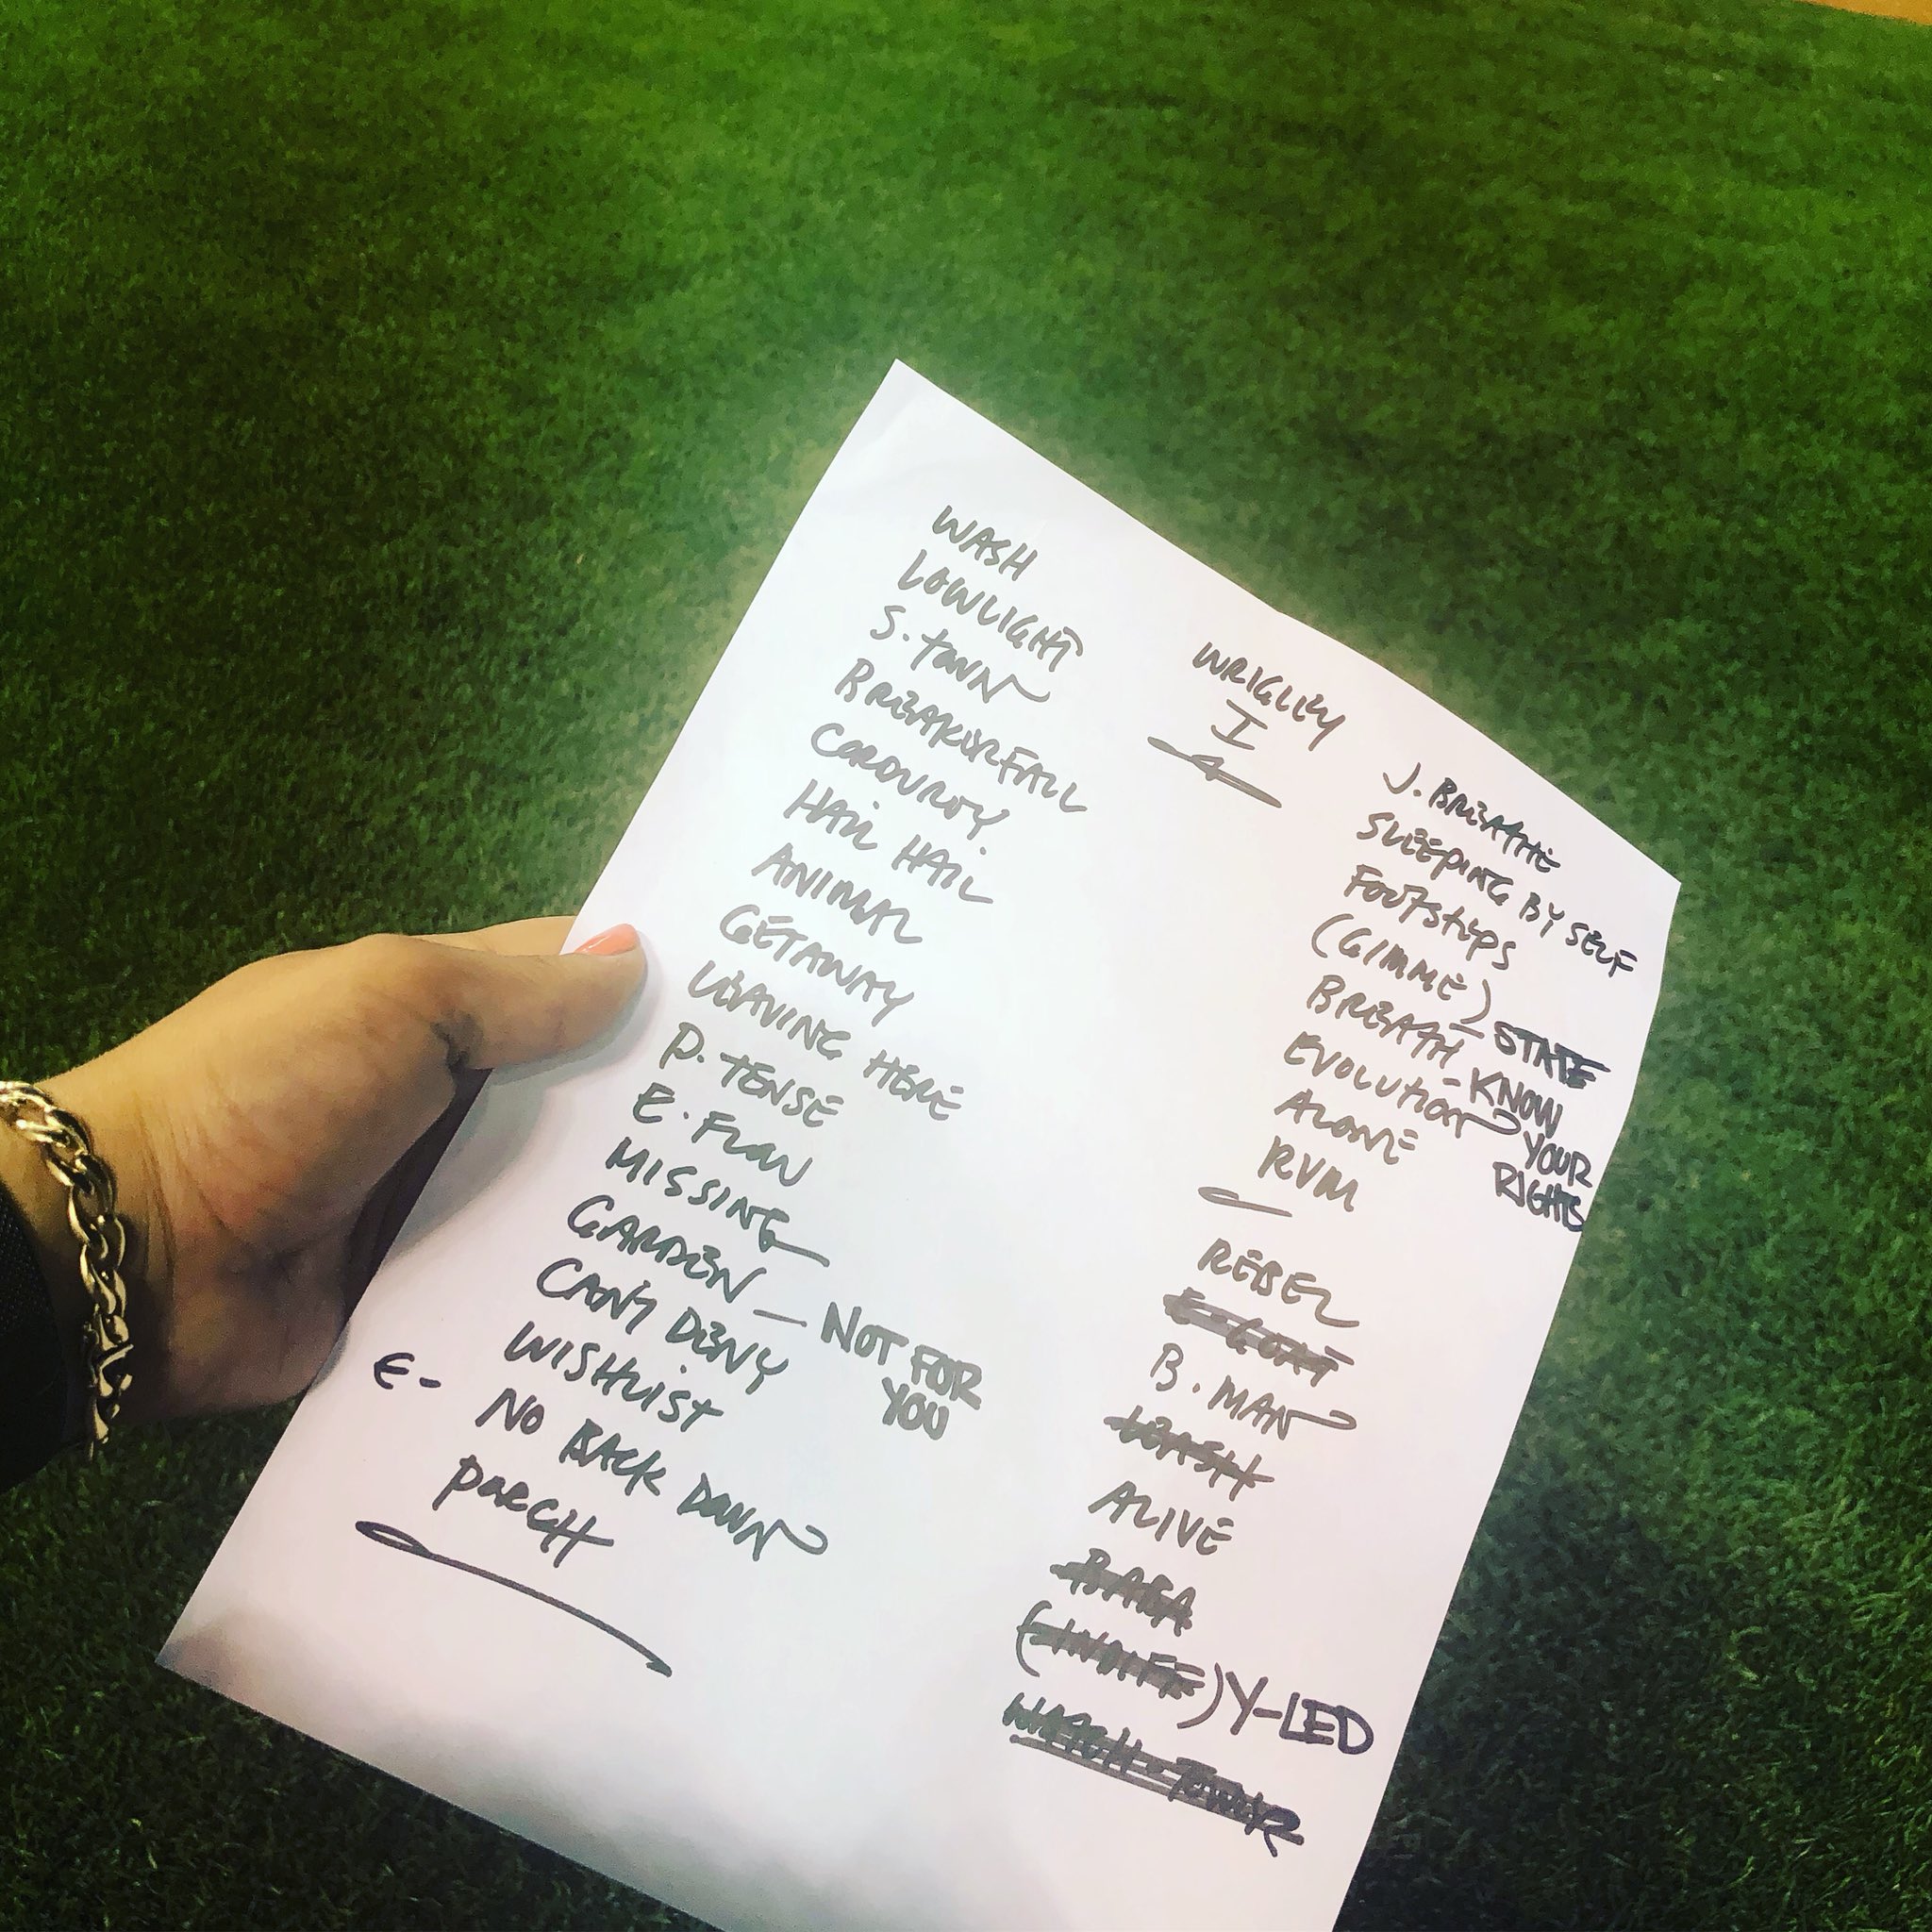 WRIGLEY
I
WASH
LOWLIGHT
S. TOWN
BREAKERFALL
CORDUROY.
HAIL HAIL
ANIMAL
GETAWAY
LEAVING HERE
P. TENSE
E. FLOW
MISSING
GARDEN — NOT FOR
YOU
CAN'T DENY
WISHLIST
E- NO BACK DOWN
PORCH
J. BREATHE
SLEEPING BY SELF
FOOTSTEPS
(GIMME) - STATE
BREATH
EVOLUTION - KNOW
YOUR
RIGHTS
ALONE
RVM
REBEL
B. MAN
LEASH
ALIVE
BABA
(INDIFF) Y-LED
WATCHTOWER